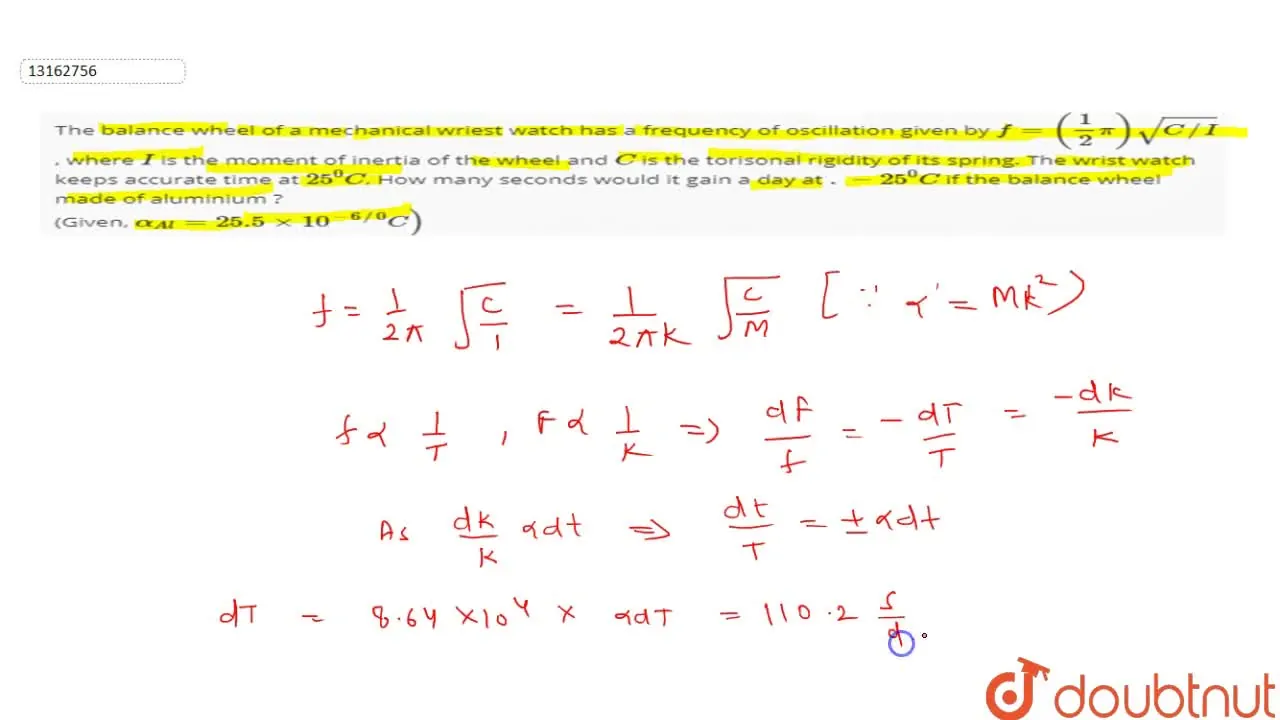 13162756
The balance wheel of a mechanical wriest watch has a frequency of oscillation given by f = (1/2 π) √C/I
, where I is the moment of inertia of the wheel and C is the torisonal rigidity of its spring. The wrist watch
keeps accurate time at 25⁰C. How many seconds would it gain a day at . −25⁰C if the balance wheel
made of aluminium ?
(Given, α_Al = 25.5 × 10^−6/0 C)
f = 1/2π √C/I = 1/2πk √C/M [∵ α' = Mk²)
f α 1/T , F α 1/K ⇒ df/f = − dT/T = −dk/k
As dk/k αdt ⇒ dt/T = ± αdt
dT = 8.64 × 10⁴ × αdT = 110.2 s/d.
doubtnut